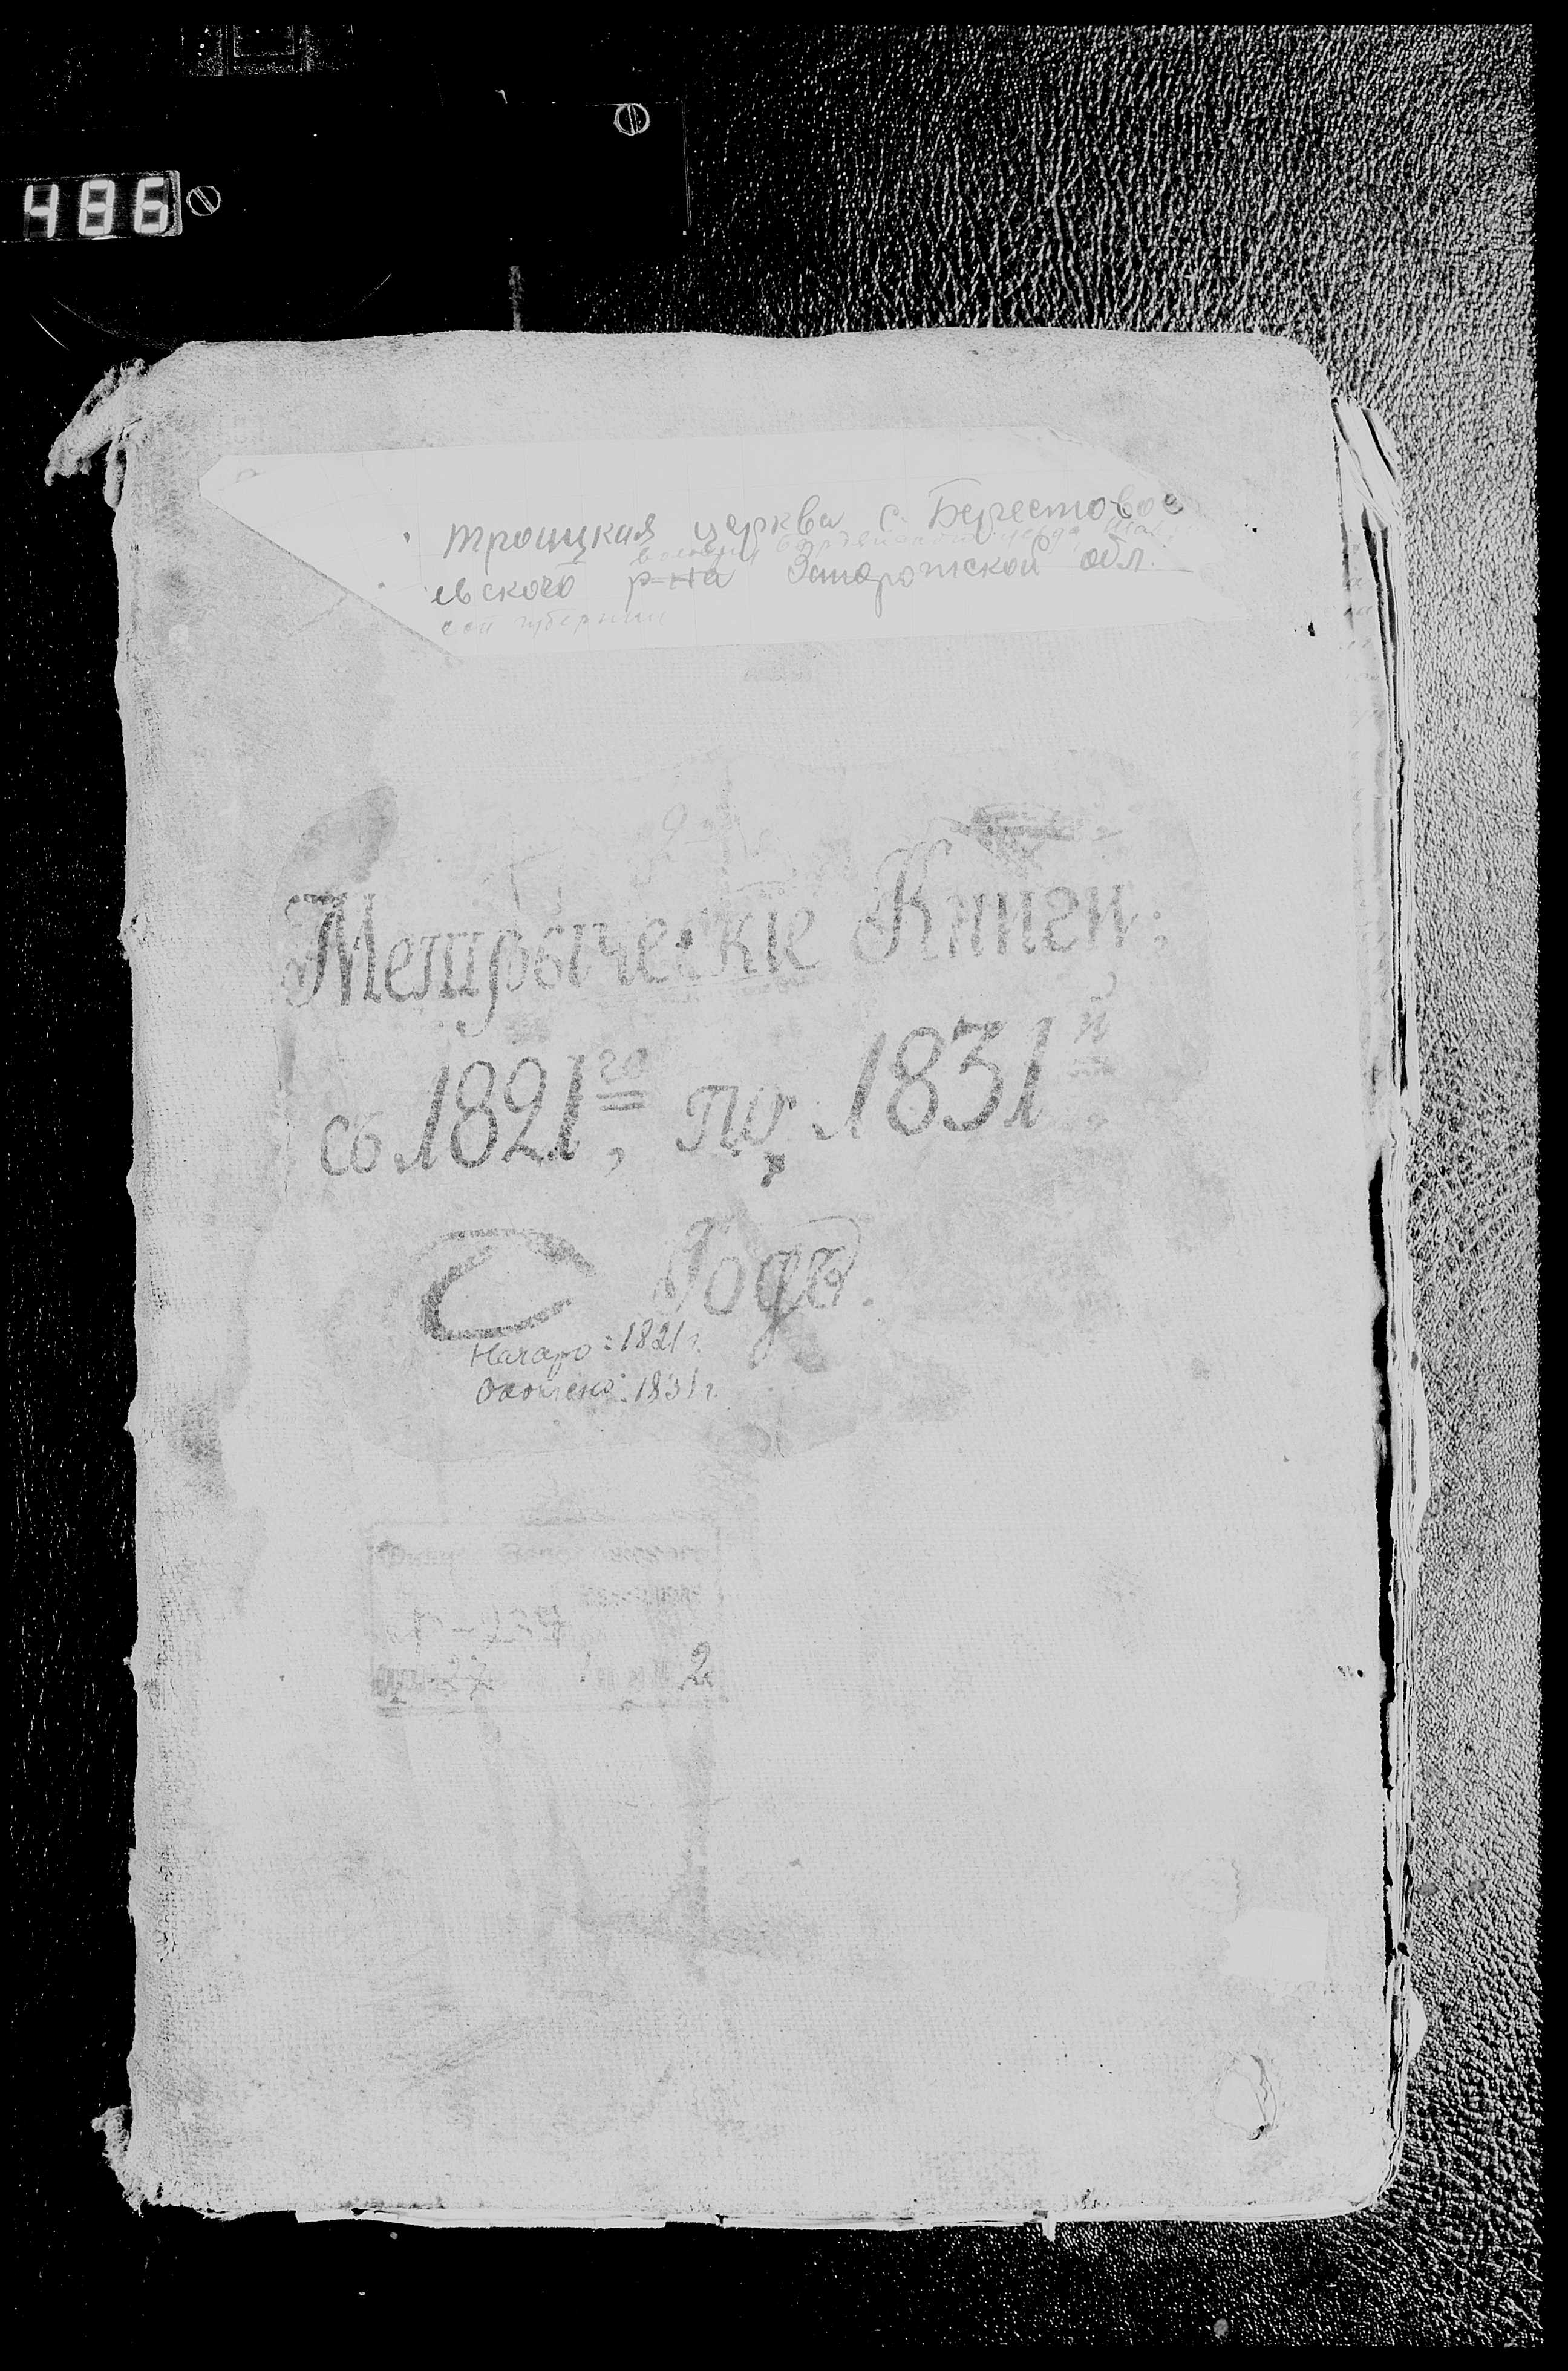 486
троицкая церква с. Берестовое
волости Бердянского уезда
льского р-на Запорожской обл.
ской губернии
Метрическіе Книги.
съ 1821го, по, 1831й
Годъ.
Начато: 1821 г.
Окончено: 1831 г.
27 2